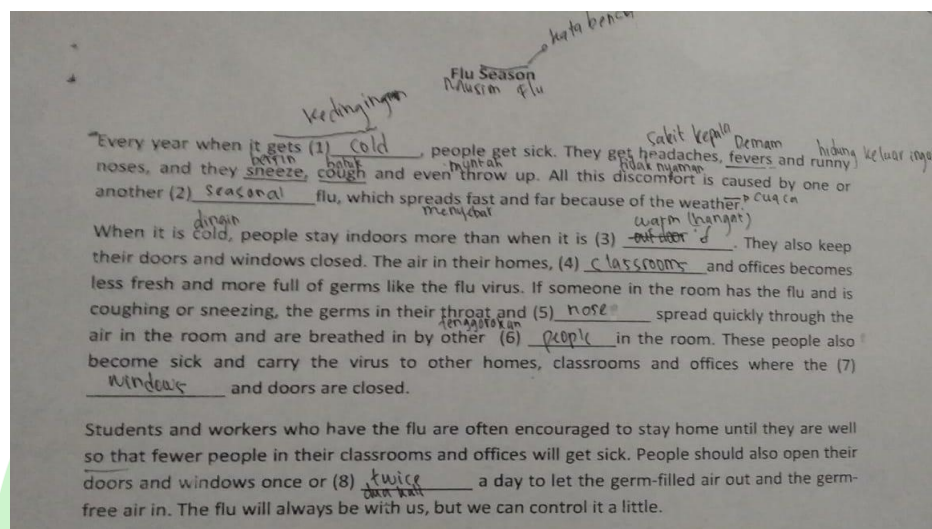 kata benda
Flu Season
Musim Flu
Kedinginan
Sakit kepala Demam hidung keluar ingu
Every year when it gets (1) cold, people get sick. They get headaches, fevers and runny
bersin batuk muntah tidak nyaman
noses, and they sneeze, cough and even throw up. All this discomfort is caused by one or
another (2) Seasonal flu, which spreads fast and far because of the weather. cuaca
menyebar
dingin warm (hangat)
When it is cold, people stay indoors more than when it is (3) outdoor. They also keep
their doors and windows closed. The air in their homes, (4) classrooms and offices becomes
less fresh and more full of germs like the flu virus. If someone in the room has the flu and is
coughing or sneezing, the germs in their throat and (5) nose spread quickly through the
tenggorokan
air in the room and are breathed in by other (6) people in the room. These people also
become sick and carry the virus to other homes, classrooms and offices where the (7)
windows and doors are closed.
Students and workers who have the flu are often encouraged to stay home until they are well
so that fewer people in their classrooms and offices will get sick. People should also open their
doors and windows once or (8) twice a day to let the germ-filled air out and the germ-
dua kali
free air in. The flu will always be with us, but we can control it a little.